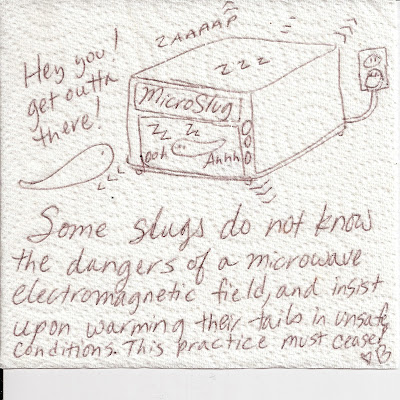 ZAAAAAP
Hey you!
get outta
there!
Z Z Z
MicroSlug
ZZ ZZ
ooh
Ahhh
Some slugs do not know
the dangers of a microwave
electromagnetic field, and insist
upon warming their tails in unsafe
conditions. This practice must cease!